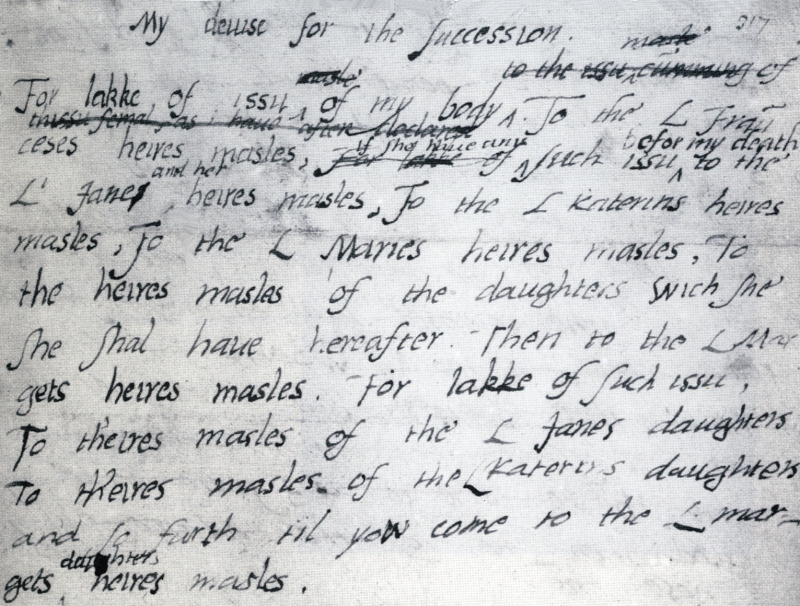 My deuise for the succession. 317
masle
masle to the issu cumming of
For lakke of issu ʌ of my body ʌ. To the L Frau
thissu femal, as i haue after declared
if she haue any befor my death
ceses heires masles, For lakke of ʌ such issu ʌ to the
and her
L' Janes heires masles, To the L Katerins heires
masles, To the L Maries heires masles, To
the heires masles of the daughters wich she
she shal haue hereafter. Then to the L Mar
gets heires masles. For lakke of such issu,
To theires masles of the L Janes daughters
To theires masles of the L Katerins daughters
and so furth til yow come to the L mar-
daughters
gets heires masles.